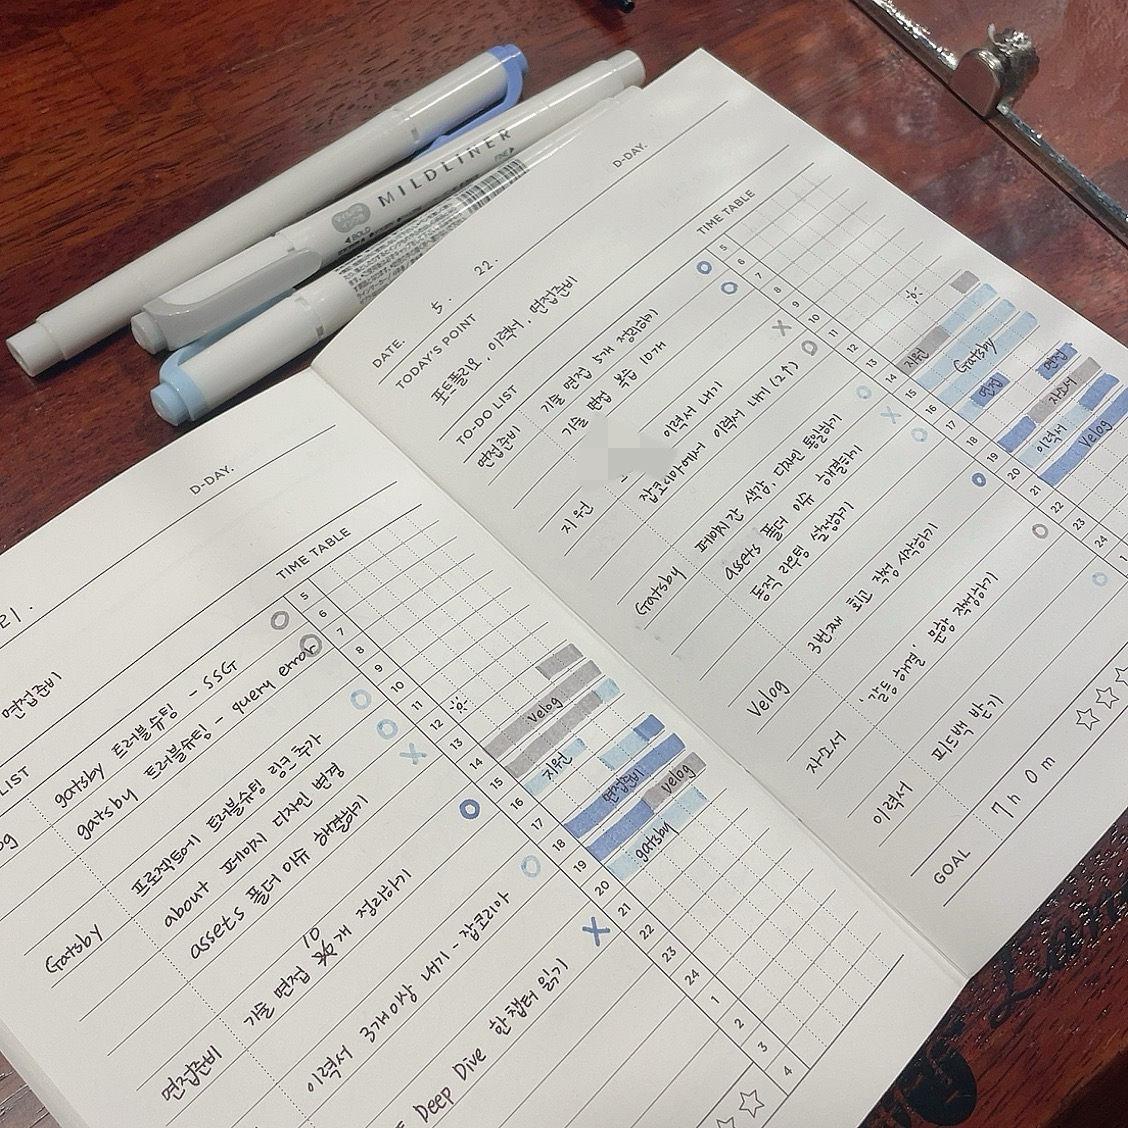 MILDLINER
◀BOLD
FINE▶
D-DAY.
TIME TABLE
면접준비
LIST
gatsby 트러블슈팅 - SSG
gatsby 트러블슈팅 - query error
Gatsby
프로젝트에 트러블슈팅 링크추가
about 페이지 디자인 변경
assets 폴더 이슈 해결하기
면접준비
기술 면접 10개 정리하기
이력서 3개이상 내기 - 잡코리아
Deep Dive 한 챕터 읽기
5
6
7
8
9
10
11
12
13
14
15
16
17
18
19
20
21
22
23
24
1
2
3
4
velog
지원
면접준비
velog
gatsby
DATE. 5. 22.
D-DAY.
TODAY'S POINT
포트폴리오, 이력서, 면접준비
TO-DO LIST
TIME TABLE
면접준비
기술 면접 5개 정리하기
기술 면접 복습 10개
지원
이력서 내기
잡코리아에서 이력서 내기 (2개)
Gatsby
페이지간 색감, 디자인 통일하기
assets 폴더 이슈 해결하기
동적 라우팅 설정하기
Velog
3번째 회고 작성 시작하기
자소서
'갈등 해결' 문항 작성하기
이력서
피드백 받기
GOAL
7h 0m
5
6
7
8
9
10
11
12
13
14
15
16
17
18
19
20
21
22
23
24
1
지원
Gatsby
면접
면접
자소서
이력서
Velog